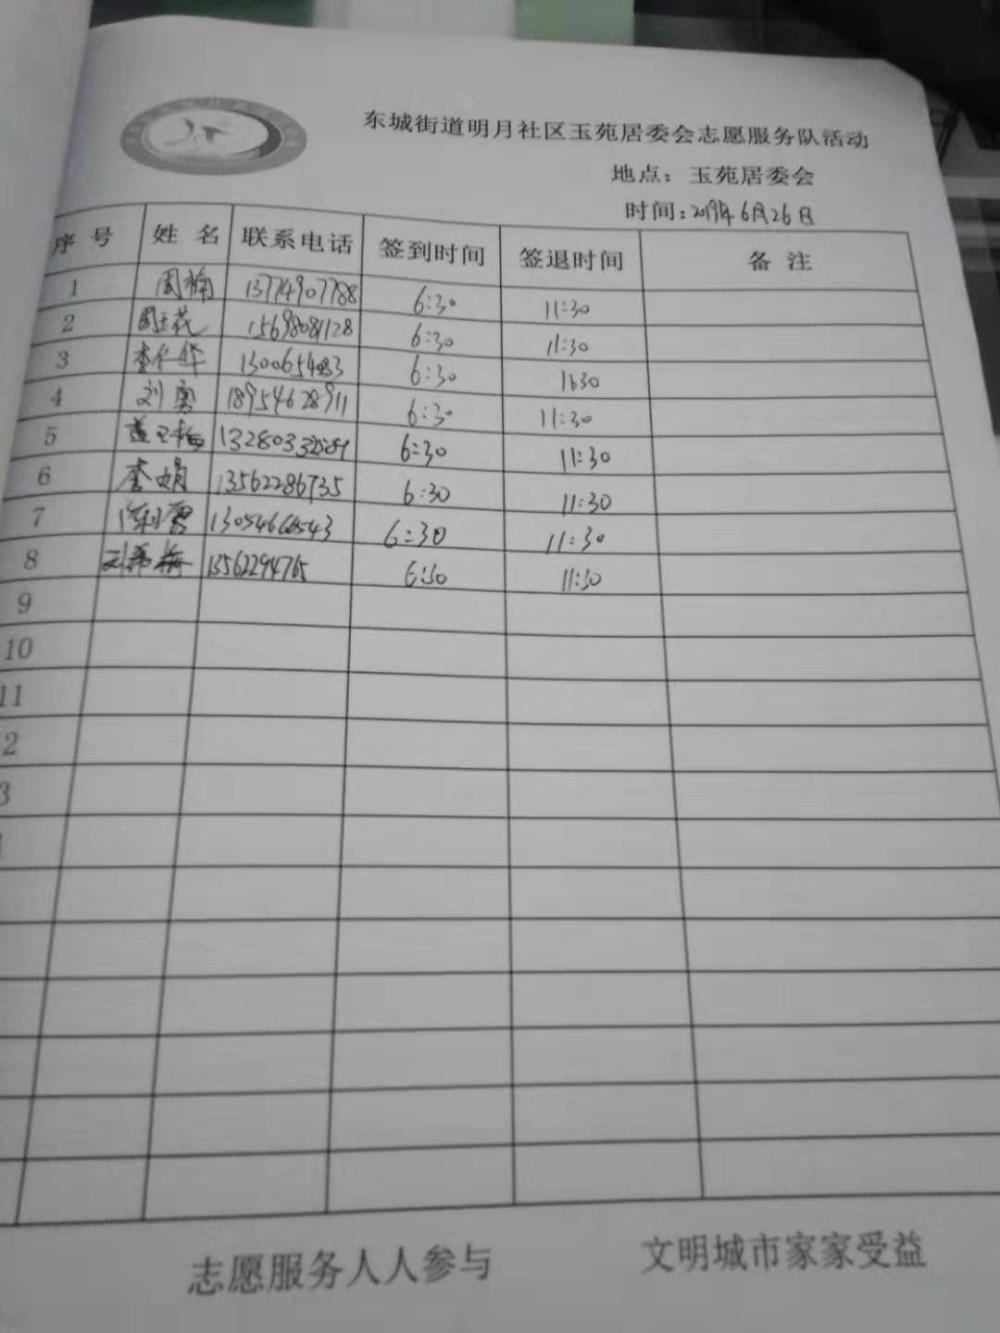 东城街道明月社区玉苑居委会志愿服务队活动
地点：玉苑居委会
时间：2019年6月26日
序号 姓名 联系电话 签到时间 签退时间 备注
1 周楠 13774907788 6:30 11:30
2 周玉花 15698081128 6:30 11:30
3 李仁华 6:30 1130
4 刘勇 18954628911 6:30 11:30
5 6:30 11:30
6 李娟 13562286735 6:30 11:30
7 6:30 11:30
8 6:30 11:30
9
10
11
2
3
志愿服务人人参与 文明城市家家受益